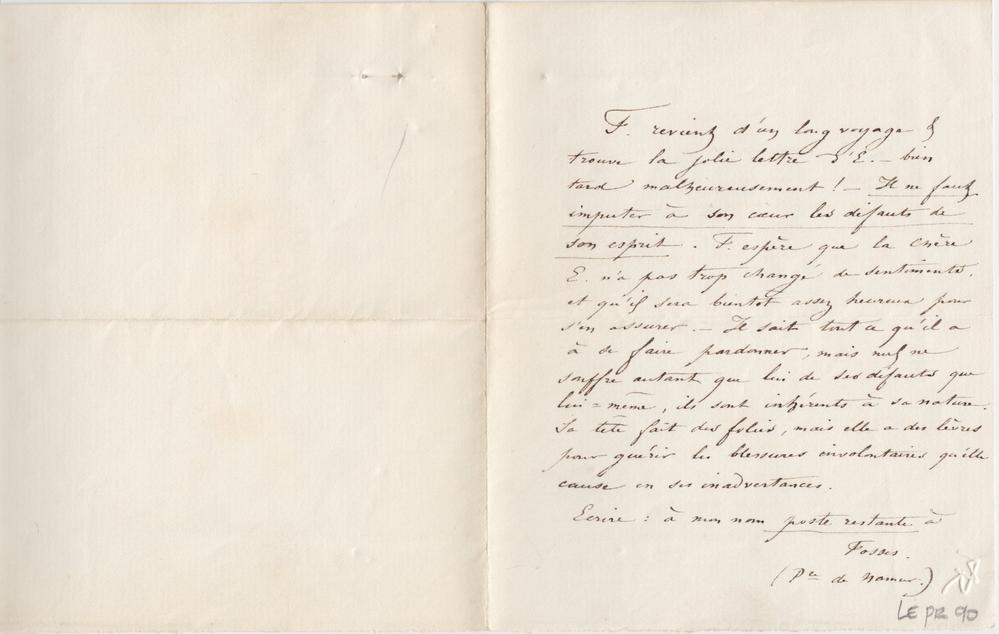 F. revient d'un long voyage &
trouve la jolie lettre d'E. – bien
tard malheureusement ! – Il ne faut
imputer à son cœur les défauts de
son esprit. F. espère que la chère
E. n'a pas trop changé de sentiments,
et qu'il sera bientôt assez heureux pour
s'en assurer. – Il sait tout ce qu'il a
à se faire pardonner, mais nul ne
souffre autant que lui de ses défauts que
lui=même, ils sont inhérents à sa nature.
Sa tête fait des folies, mais elle a des lèvres
pour guérir les blessures involontaires qu'elle
cause en ses inadvertances.
Ecrire : à mon nom poste restante à
Fosses.
(Pce de Namur.)
LE PR 90